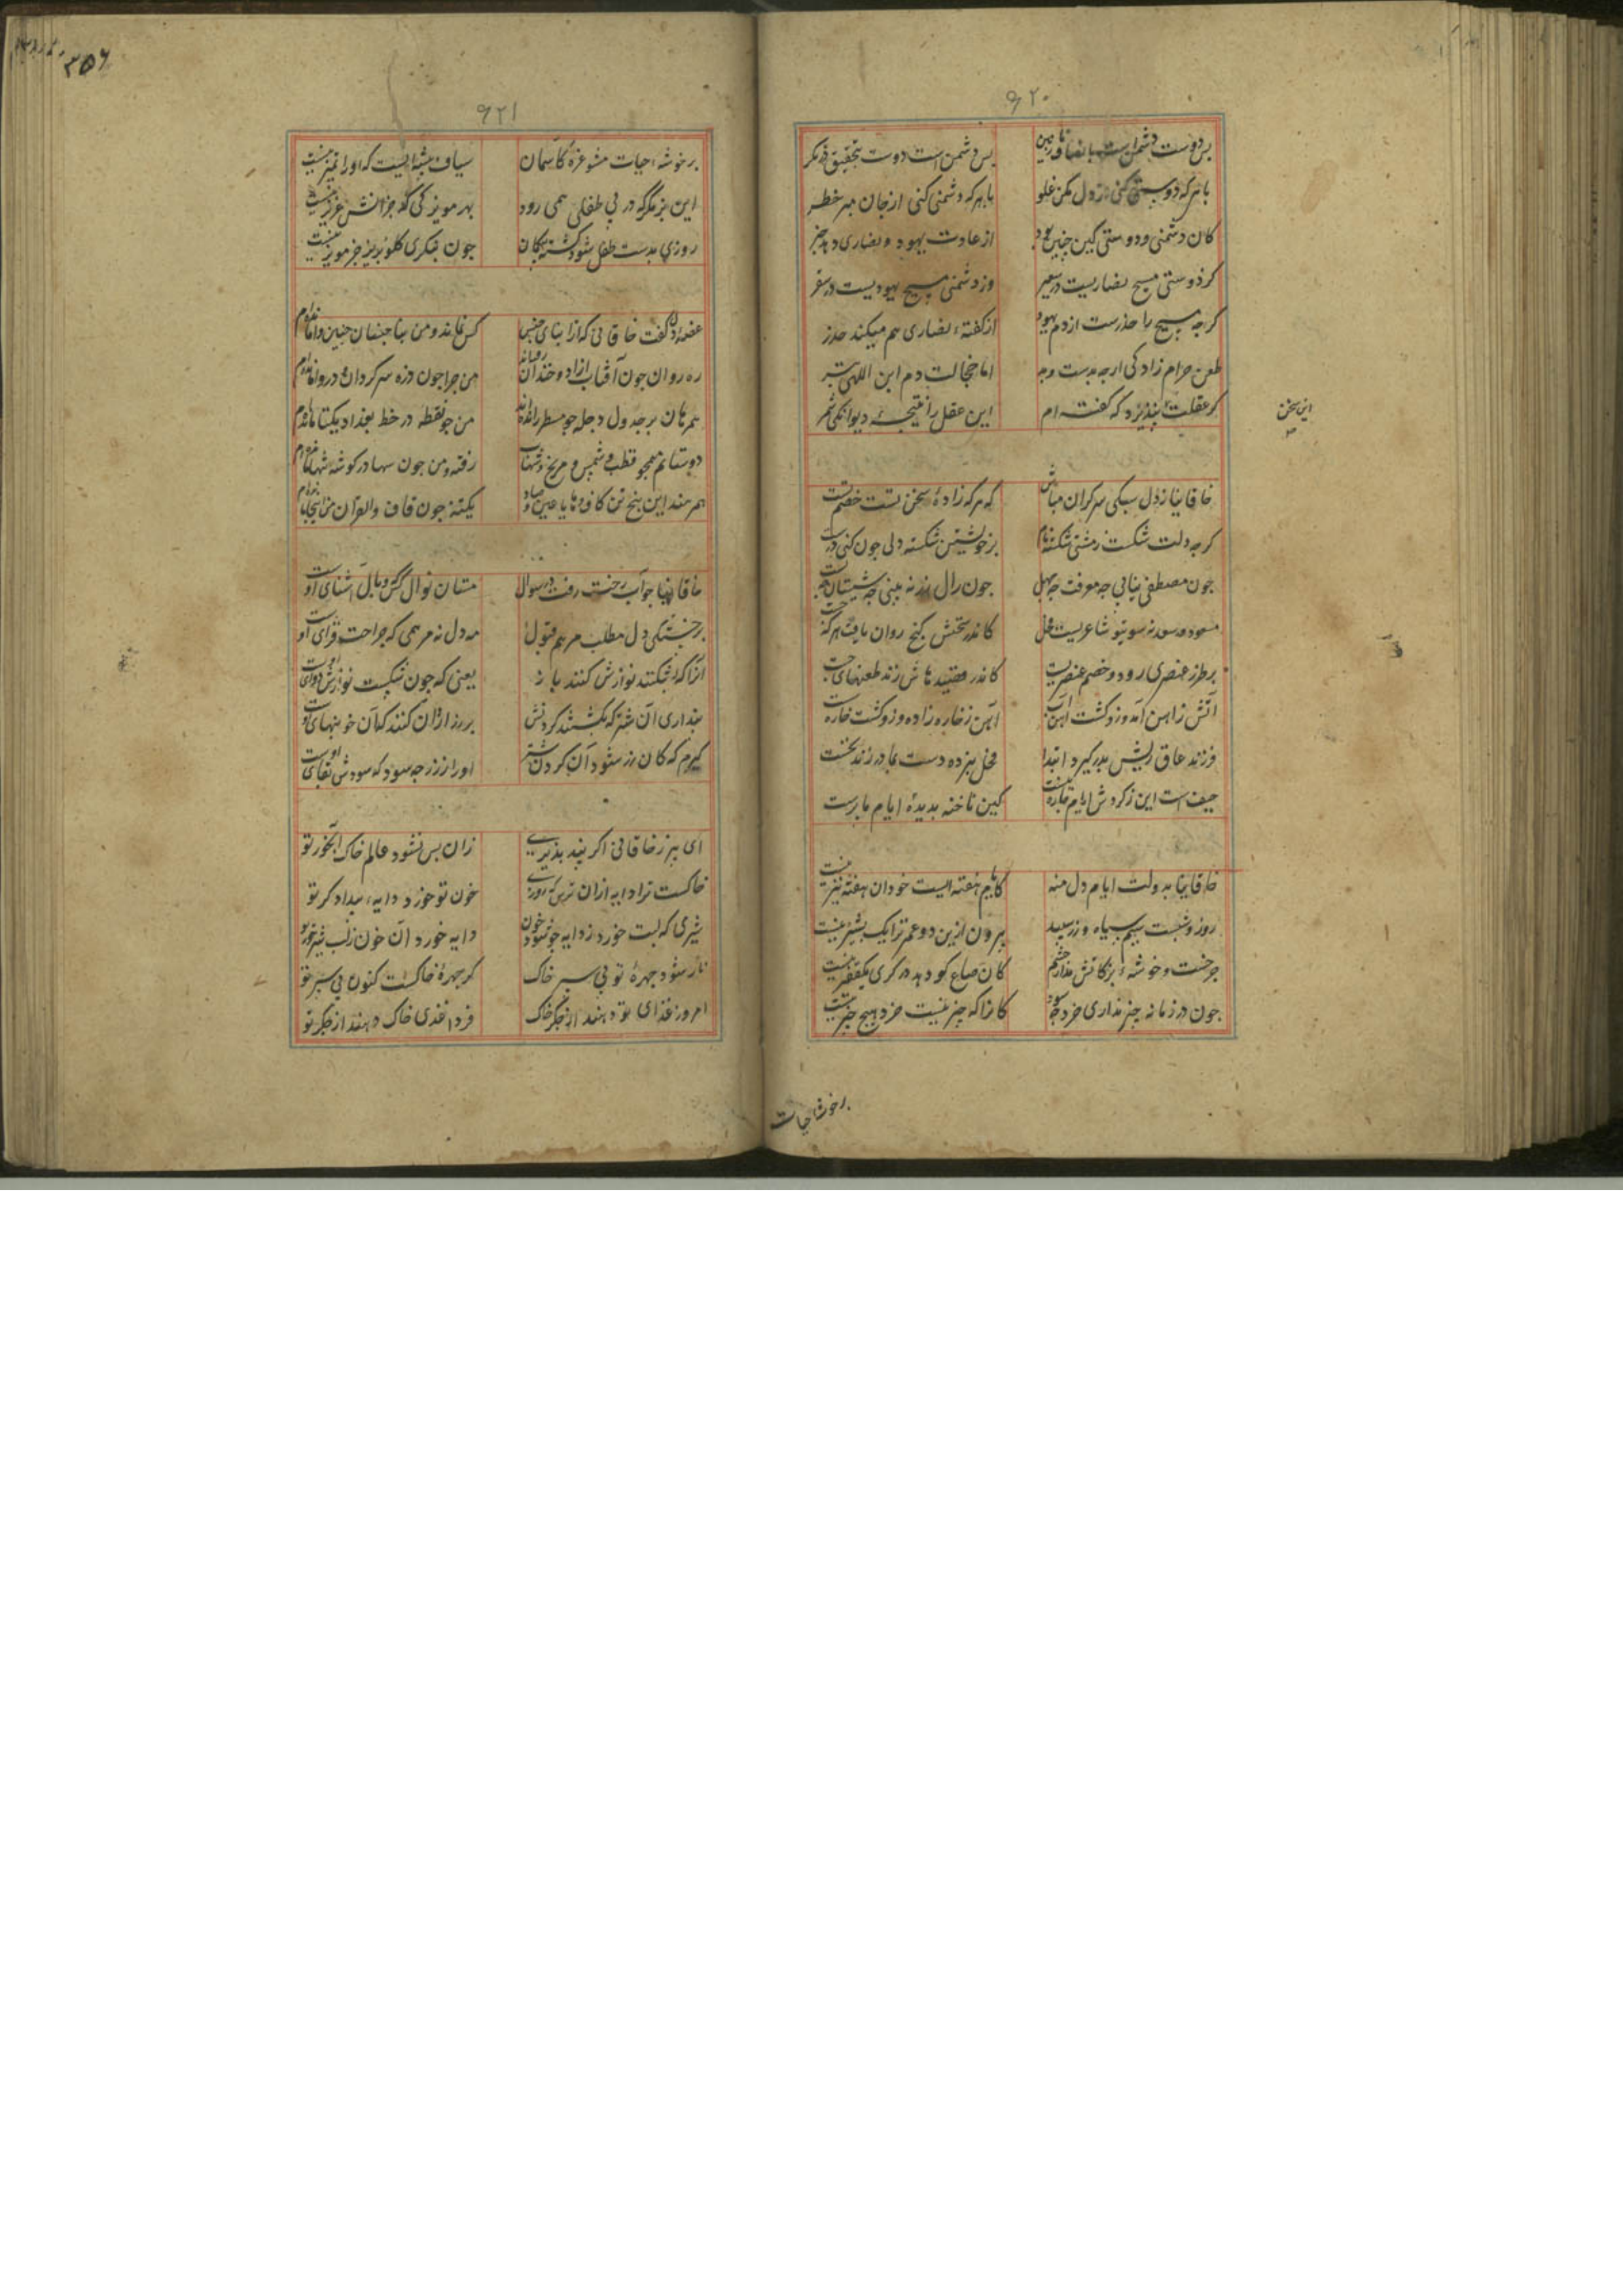 ۶۲۰
بس دوست دشمن است بانصاف بین بس دشمن است دوست بتحقیق در نکر
با هرکه دوستی کنی از دل مکن غلو با هرکه دشمنی کنی از جان مبر خطر
کان دشمنی و دوستی کین چنین بود از عادت یهود و نصاری دهد خبر
کر دوستی مسیح نصاریست در سعیر وز دشمنی مسیح یهودیست در سقر
کرجه مسیح را حذرست از دم یهود از کفتهٔ نصاری هم میکند حذر
طعن حرام زادکی ارجه بدست وجه اما خجالت دم ابن اللهی بتر
کر عقلت بنپذیرد که کفته‌ام این عقل را نتیجهٔ دیوانکی شمر
این سخن
خاقانیا ز دل سبکی سرکران مباش که هرکه زادهٔ سخن تست خصم تست
کرجه دلت شکست ز مشتی شکسته نام بر خویشتن شکسته دلی جون کنی درست
جون مصطفی نیابی جه معرفت جه جهل جون زال زر نه بینی جه سیستان جه بست
مسعود سعد نه سوی تو شاعریست فحل کاندر سخنش کنج روان یافت هرکه جست
بر طرز عنصری رود و خصم عنصریست کاندر قصیدهاش زند طعنهای جست
آتش ز آهن آمد و زو کشت آهن آب آهن ز خاره زاده و زو کشت خاره سست
فرزند عاق ریش بدر کیرد ابتدا فحل نبهره دست بمادر زند نخست
حیف است این ز کردش ایام جاره نیست کین ناخنه بدیدهٔ ایام ما برست
خاقانیا بدولت ایام دل منه کایام هفته‌ایست خود آن هفته نیز نیست
روز و شبست سیم سیاه و زر سپید بیرون ازین دو عمر ترا یک بشیز نیست
جرخست و خوشهٔ بزکاتش مدار چشم کان صاع کو دهد دو کری یک قفیز نیست
جون در زمانه چیز نداری خرد جه سود کانرا که چیز نیست خرد هیچ چیز نیست
برخوشهٔ حیات
۳۵۶
۶۲۱
بر خوشهٔ حیات مشو غره کاسمان سیاف پیشه‌ایست که او را تمیز نیست
این بز نکر که در پی طفلی همی رود بهر مویز کی که جز آنش عزیز نیست
روزی بدست طفل شود کشته بی‌کمان جون بنکری کلوبر بز جز مویز نیست
غصه‌دل کفت خاقانی که از ابنای جنس کس نماند و من بناجنسان چنین وامانده‌ام
ره روان چون آفتاب آزاد و خندان رفته‌اند من چرا چون ذره سرکردان و دروا مانده‌ام
همرهان بر جدول دجله جو مسطر رانده‌اند من جو نقطه در خط بغداد یکتا مانده‌ام
دوستانم همجو قطب و شمس و مریخ و شهاب رفته و من جون سها در کوشه تنها مانده‌ام
بهرمند این پنج تن کاف و ها یا عین و صاد یکتنه جون قاف والقرآن من اینجا مانده‌ام
خاقانیا جواب رخت رفت در سؤال مستان نوال کس که وبال آشنای اوست
بر خستکی دل مطلب مرهم قبول مه دل نه مرهمی که جراحت فزای اوست
آنرا که بشکنند نوازش کنند باز یعنی که جون شکست نوازش دوای اوست
پنداری آن شتر که بکشتند کردنش بر زر از آن کنند که آن خونبهای اوست
کیرم که کان زر شود آن کردن شتر او را ز زر جه سود که سودش بقای اوست
ای پیر ز خاقانی اکر پند پذیری زان پس نشود عالم خاک آبخور تو
خاکست ترا دایه از آن ترس که روزی خون تو خورد دایهٔ بیدادکر تو
شیری که لبت خورد ز دایه جو شود خون دایه خورد آن خون ز لب شیرخور تو
ناز شود جهرهٔ تو پی سپر خاک کر جهرهٔ خاکست کنون پی سپر تو
امروز غذای تو دهند از جکر خاک فردا غذی خاک دهند از جکر تو